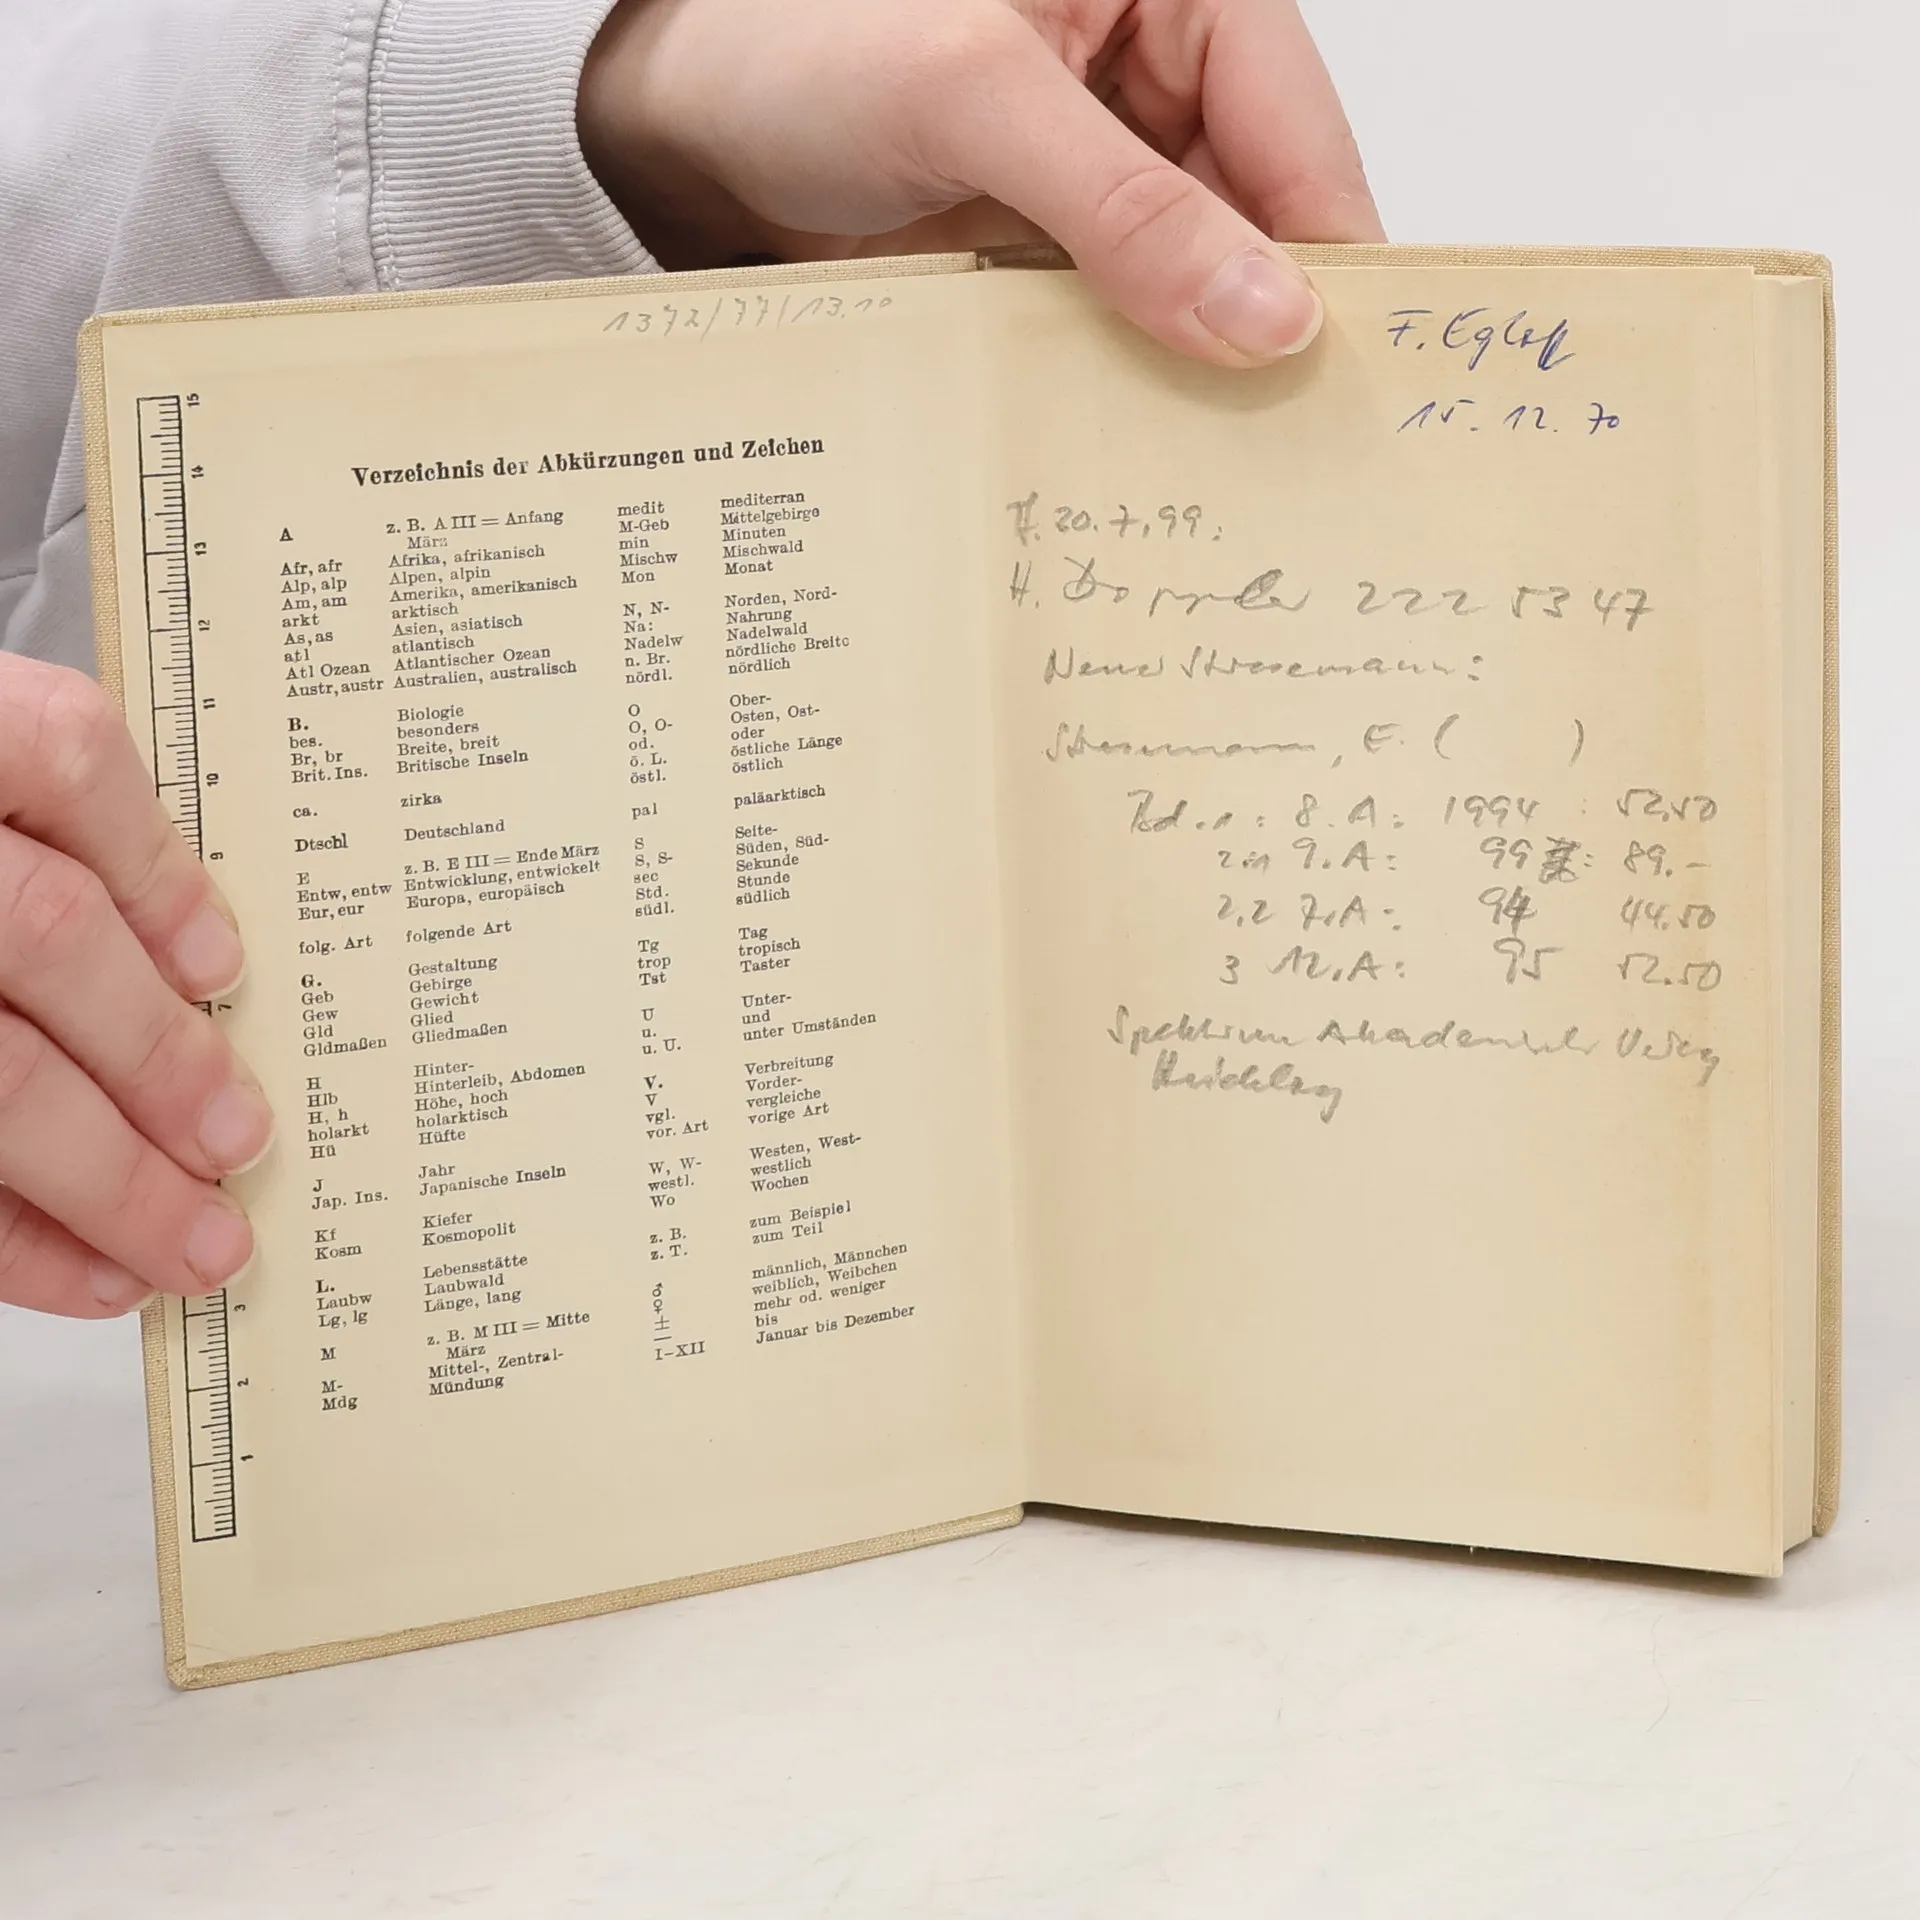 1372/77/13.10
15
14
13
12
11
10
9
7
3
2
1
Verzeichnis der Abkürzungen und Zeichen
A z. B. A III = Anfang
März
Afr, afr Afrika, afrikanisch
Alp, alp Alpen, alpin
Am, am Amerika, amerikanisch
arkt arktisch
As, as Asien, asiatisch
atl atlantisch
Atl Ozean Atlantischer Ozean
Austr, austr Australien, australisch
B. Biologie
bes. besonders
Br, br Breite, breit
Brit. Ins. Britische Inseln
ca. zirka
Dtschl Deutschland
E z. B. E III = Ende März
Entw, entw Entwicklung, entwickelt
Eur, eur Europa, europäisch
folg. Art folgende Art
G. Gestaltung
Geb Gebirge
Gew Gewicht
Gld Glied
Gldmaßen Gliedmaßen
H Hinter-
Hlb Hinterleib, Abdomen
H, h Höhe, hoch
holarkt holarktisch
Hü Hüfte
J Jahr
Jap. Ins. Japanische Inseln
Kf Kiefer
Kosm Kosmopolit
L. Lebensstätte
Laubw Laubwald
Lg, lg Länge, lang
M z. B. M III = Mitte
März
M- Mittel-, Zentral-
Mdg Mündung
medit mediterran
M-Geb Mittelgebirge
min Minuten
Mischw Mischwald
Mon Monat
N, N- Norden, Nord-
Na: Nahrung
Nadelw Nadelwald
n. Br. nördliche Breite
nördl. nördlich
O Ober-
O, O- Osten, Ost-
od. oder
ö. L. östliche Länge
östl. östlich
pal paläarktisch
S Seite-
S, S- Süden, Süd-
sec Sekunde
Std. Stunde
südl. südlich
Tg Tag
trop tropisch
Tst Taster
U Unter-
u. und
u. U. unter Umständen
V. Verbreitung
V Vorder-
vgl. vergleiche
vor. Art vorige Art
W, W- Westen, West-
westl. westlich
Wo Wochen
z. B. zum Beispiel
z. T. zum Teil
♂ männlich, Männchen
♀ weiblich, Weibchen
± mehr od. weniger
— bis
I–XII Januar bis Dezember
F. Eglof
15. 12. 70
20.7.99:
H. Doppler 222 53 47
Neuer Stresemann:
Stresemann, E. ( )
Bd. 1: 8. A: 1994 : 52.50
9. A: 99 : 89.–
2.2 7. A: 94 44.50
3 12. A: 95 52.50
Spektrum Akademischer Verlag
Heidelberg